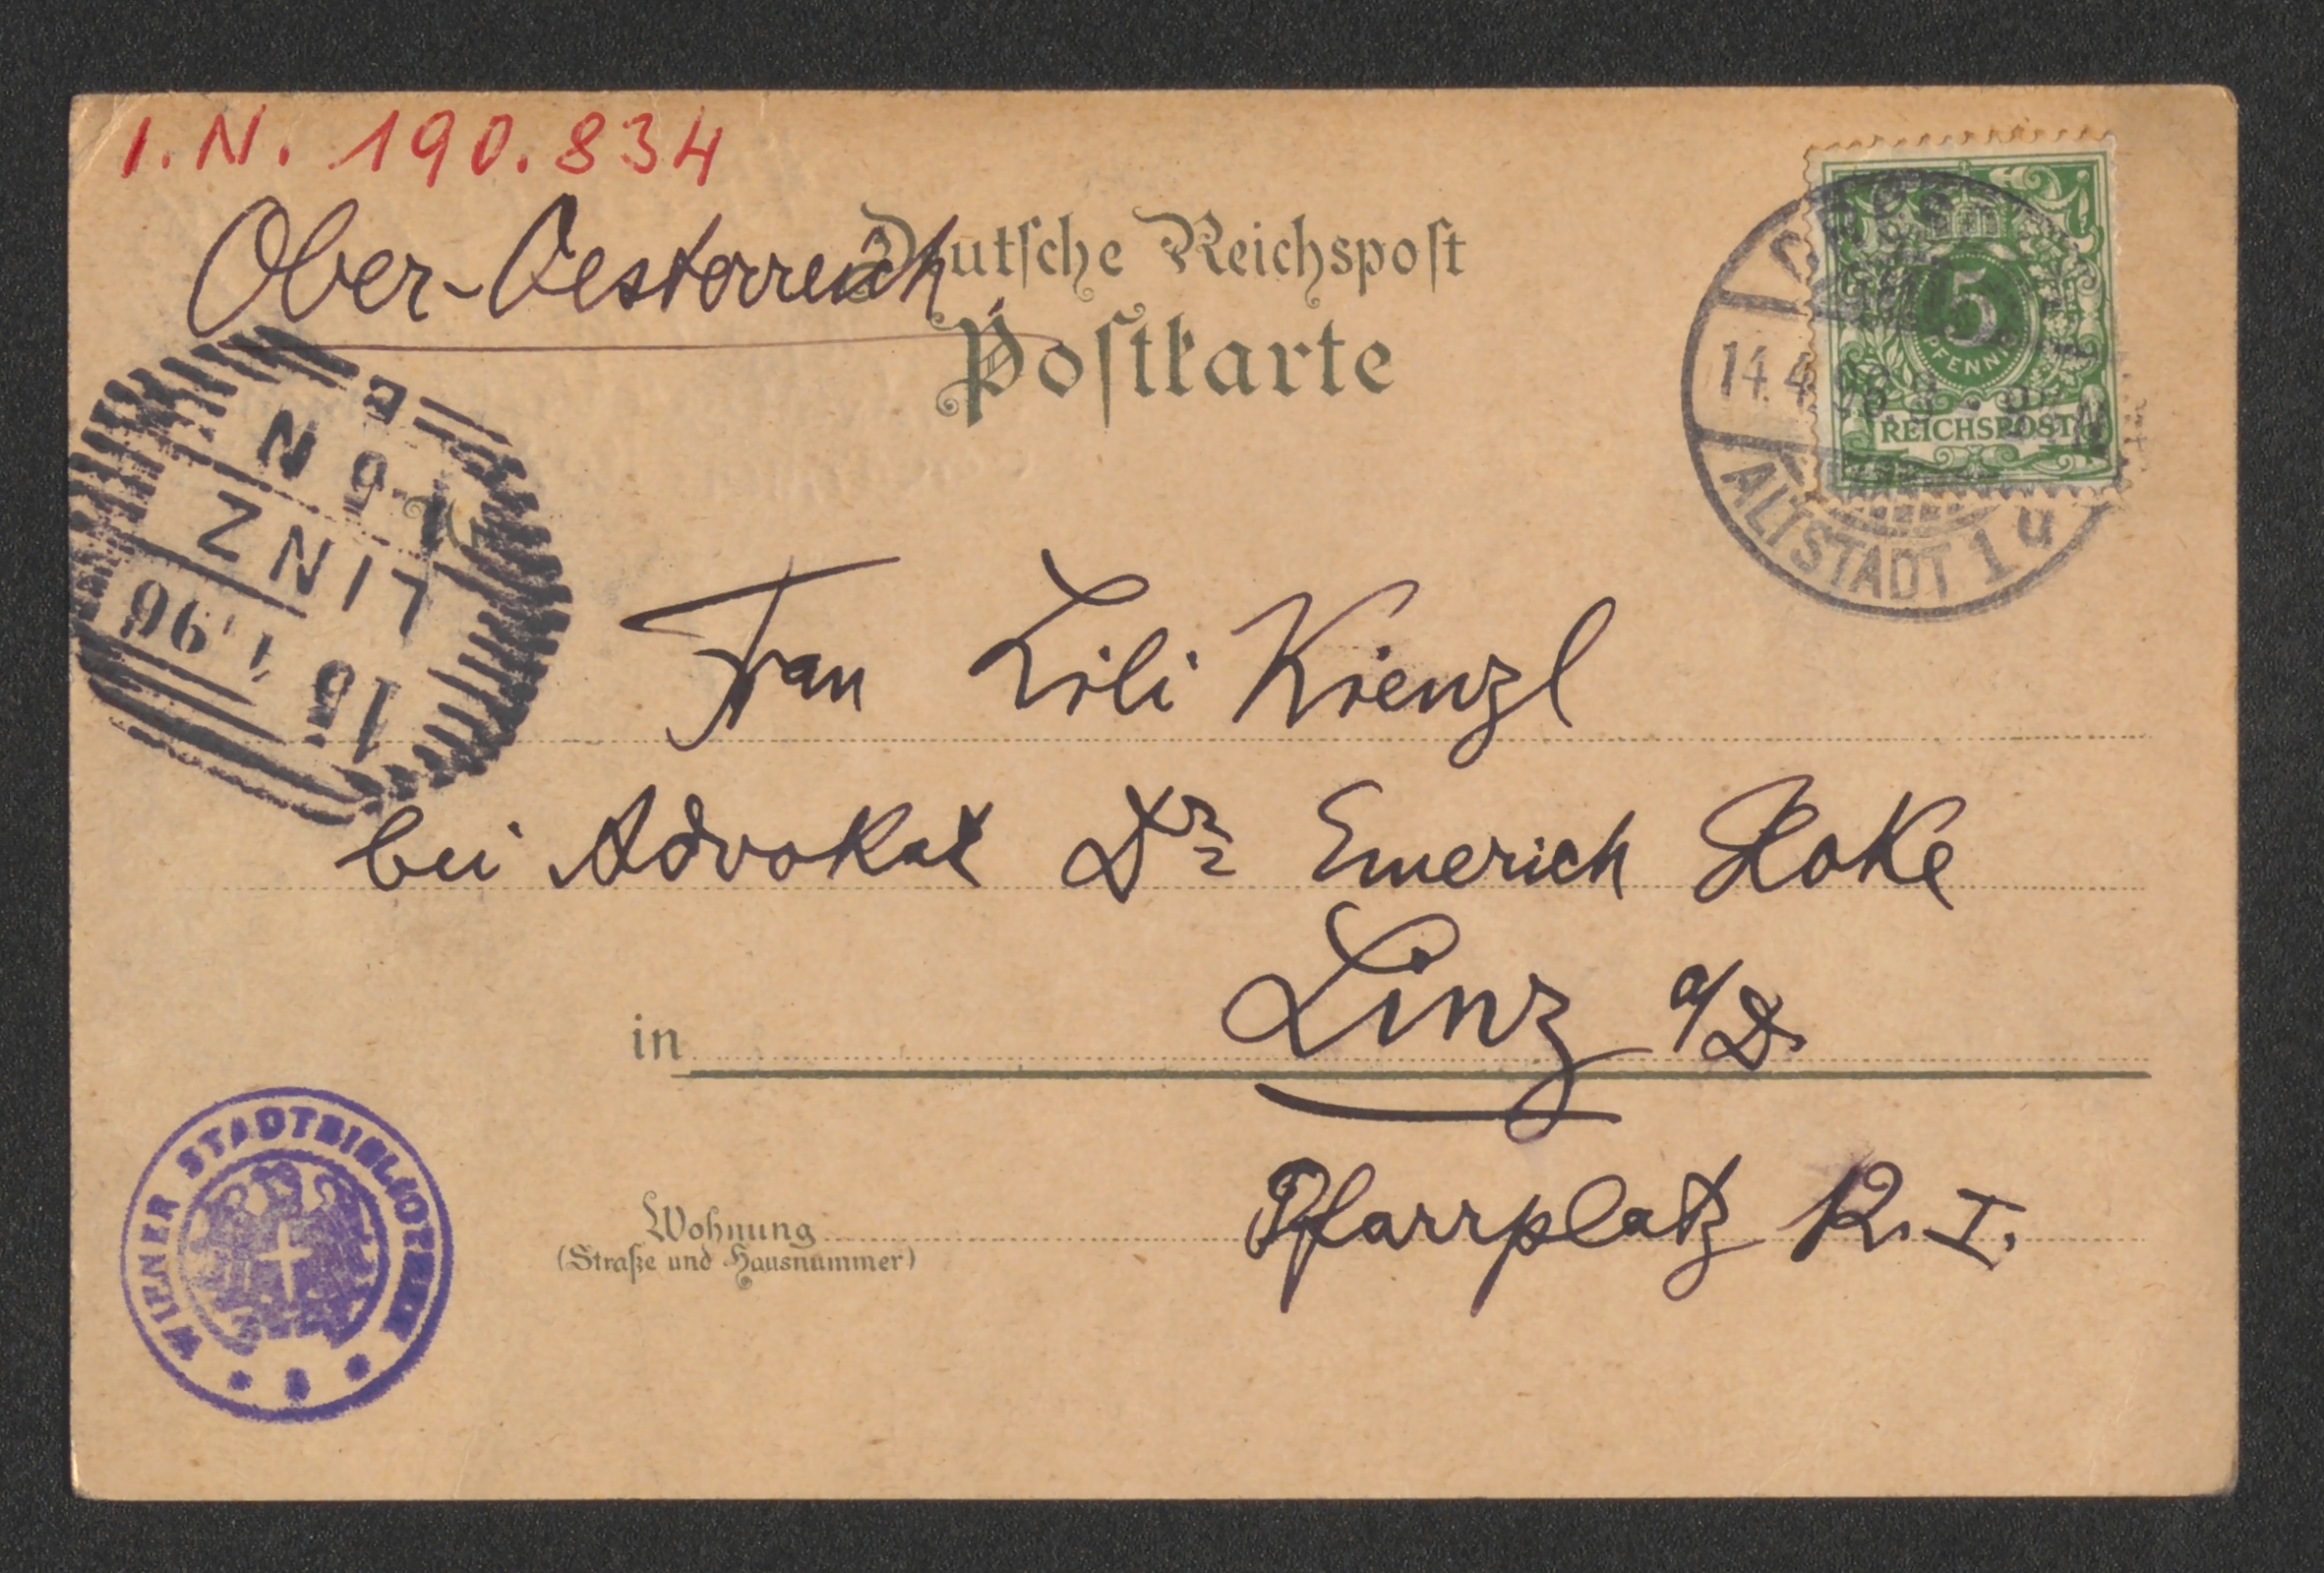 I.N. 190.834
Ober-Oesterreich
Deutsche Reichspost
Postkarte
5
PFENNIG
REICHSPOST
14.4.96
N
ALTSTADT 1 u
N
LINZ
15 96
Frau Lili Kienzl
bei Advokat Dr Emerich Hoke
in Linz a/D.
Wohnung
(Straße und Hausnummer)
Pfarrplatz 12. I.
WIENER STADTBIBLIOTHEK